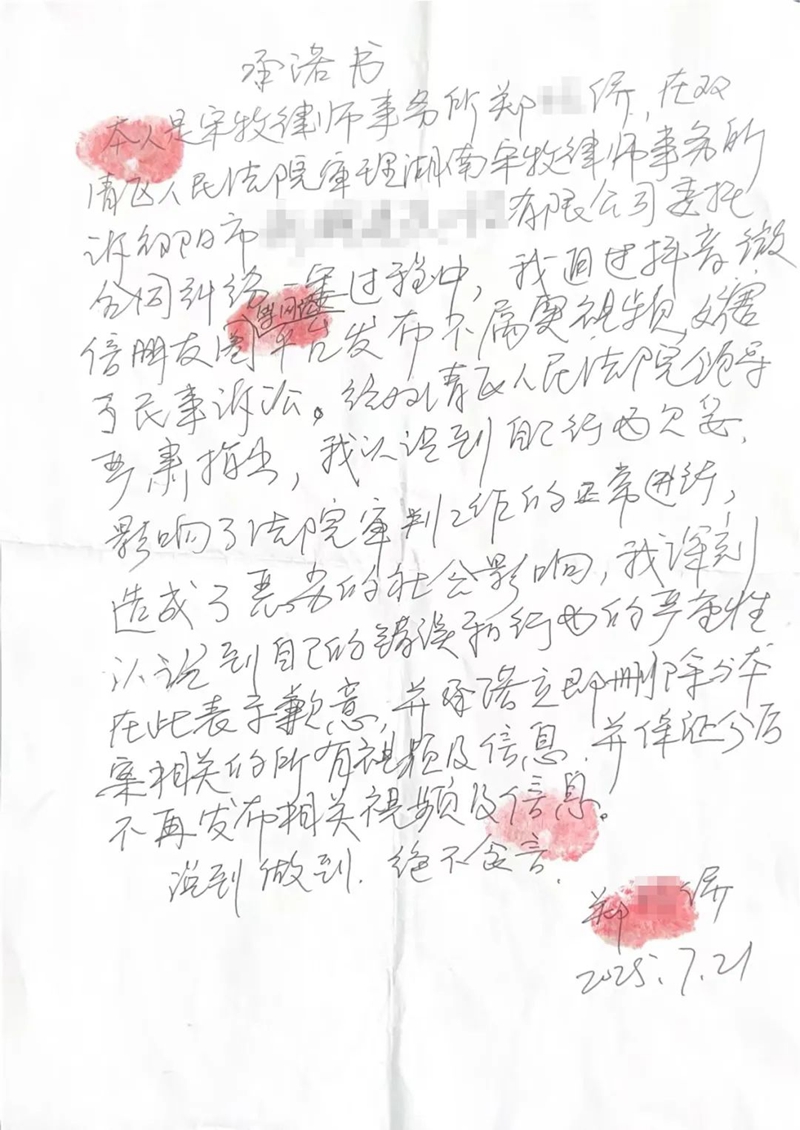 承诺书
本人是宋牧律师事务所郑 侨,在双
清区人民法院审理湖南宋牧律师事务所
诉邵阳市 有限公司委托
合同纠纷一案过程中,我通过抖音、微
信朋友圈等网络平台发布不属实视频,妨害
了民事诉讼。经双清区人民法院领导
严肃指出,我认识到自己行为欠妥,
影响了法院审判工作的正常进行,
造成了恶劣的社会影响,我深刻
认识到自己的错误和行为的严重性
在此表示歉意,并承诺立即删除与本
案相关的所有视频及信息,并保证今后
不再发布相关视频及信息。
说到做到,绝不食言。
郑 侨
2025.7.21